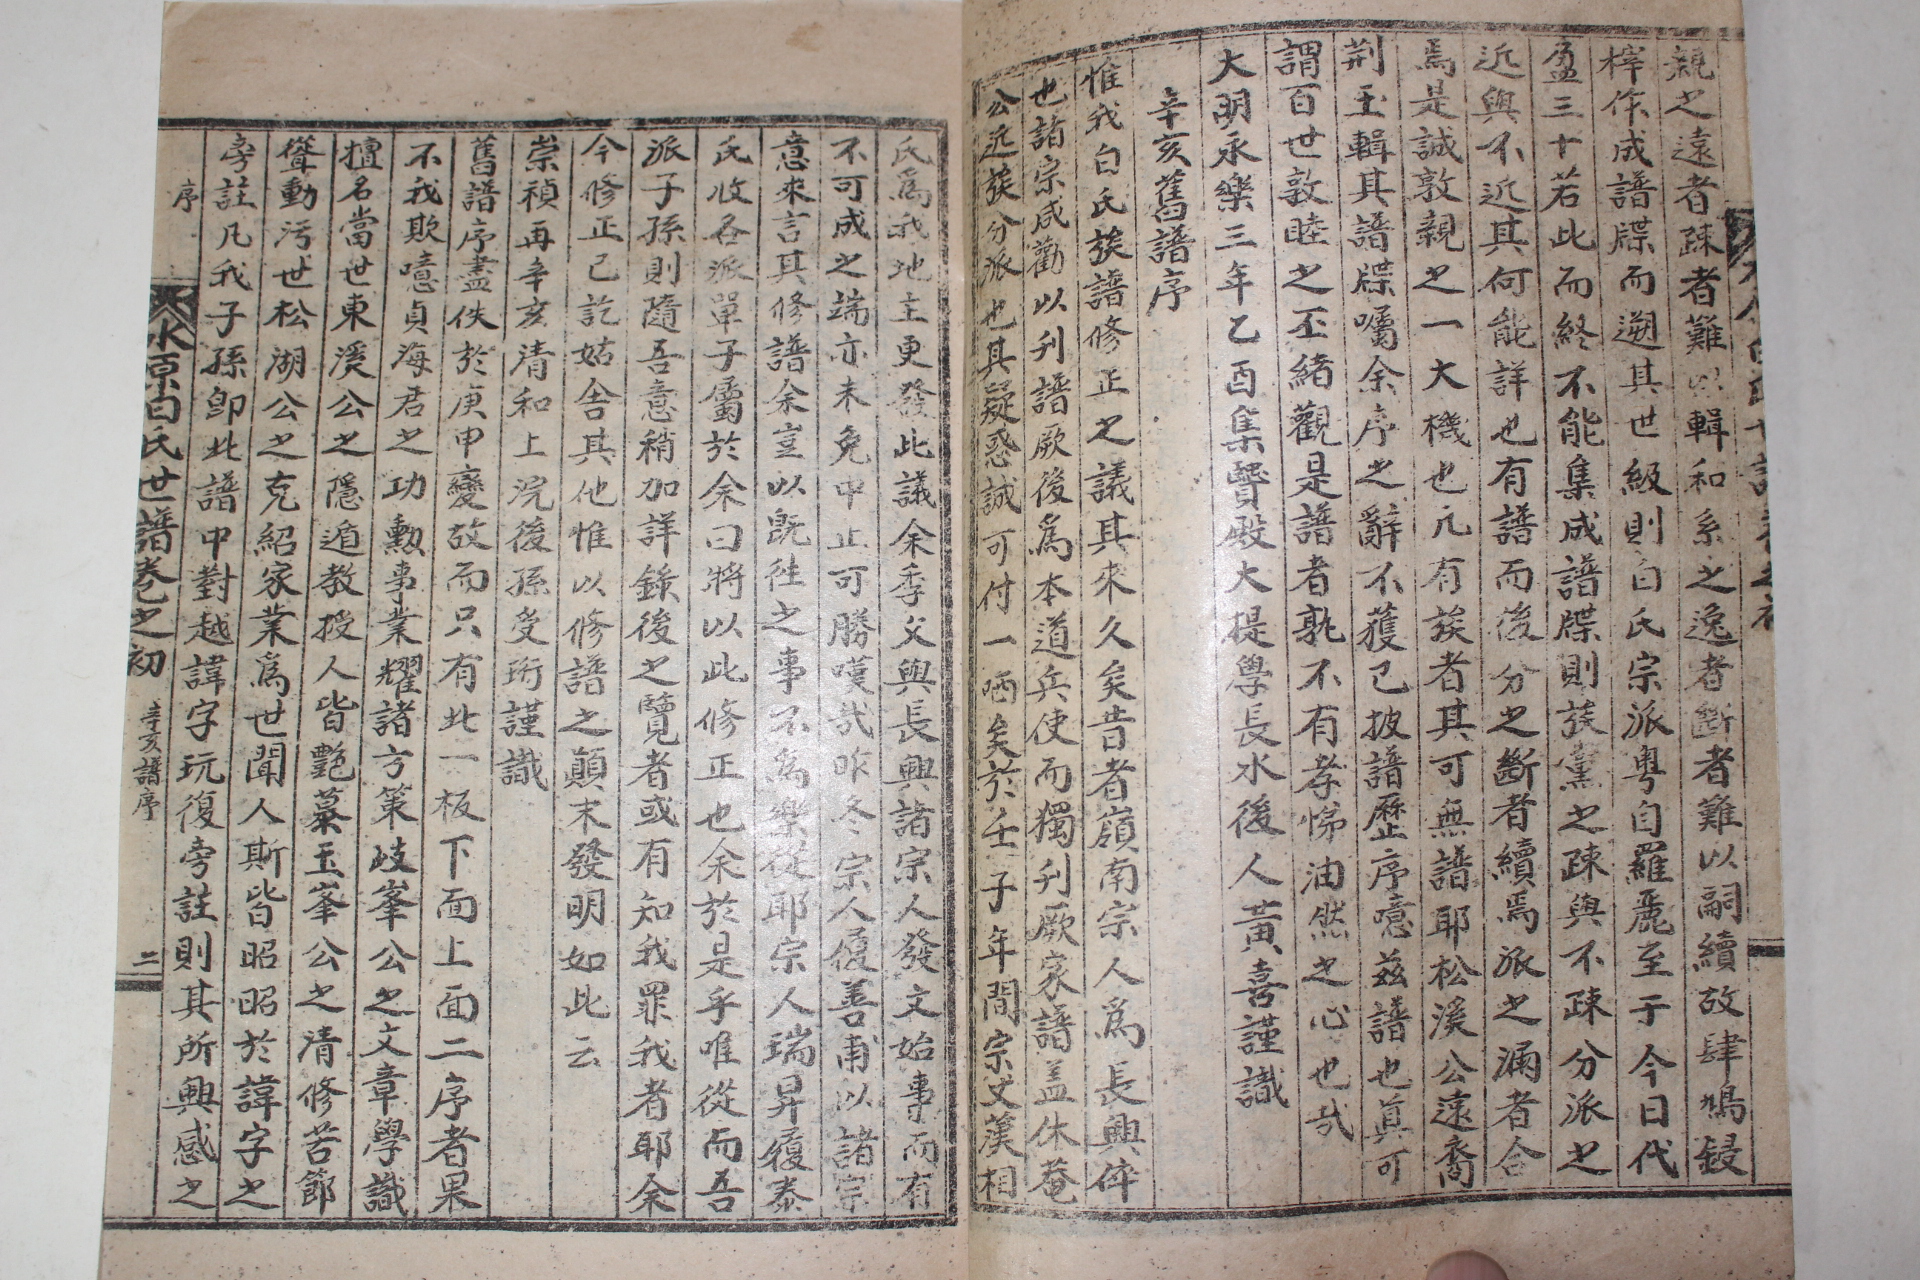 親之遠者疎者難以輯和系之逸者斷者難以嗣續故肆鳩錄
梓作成譜牒而遡其世級則白氏宗派粵自羅麗至于今日代
盈三十若此而終不能集成譜牒則族黨之疎與不疎分派之
近與不近其何能詳也有譜而後分之斷者續焉派之漏者合
焉是誠敦親之一大機也凡有族者其可無譜耶松溪公遠裔
荆玉輯其譜牒囑余序之辭不獲已披譜歷序噫茲譜也眞可
謂百世敦睦之丕緒觀是譜者孰不有孝悌油然之心也哉
大明永樂三年乙酉集賢殿大提學長水後人黃喜謹識
辛亥舊譜序
惟我白氏族譜修正之議其來久矣昔者嶺南宗人爲長興倅
也諸宗咸勸以刊譜厥後爲本道兵使而獨刊厥家譜盖休菴
公近族分派也其疑惑誠可付一哂矣於壬子年間宗丈漢相
氏爲我地主更發此議余季父與長興諸宗人發文始事而有
不可成之端亦未免中止可勝嘆哉昨冬宗人履善甫以諸宗
意來言其修譜余豈以旣往之事不爲樂從耶宗人瑞昇履泰
氏收各派單子屬於余曰將以此修正也余於是乎唯從而吾
派子孫則隨吾意稍加詳錄後之覽者或有知我罪我者耶余
今修正已訖姑舍其他惟以修譜之顚末發明如此云
崇禎再辛亥淸和上浣後孫受珩謹識
舊譜序盡佚於庚申變故而只有此一板下面上面二序者果
不我欺噫貞海君之功勳事業耀諸方策岐峯公之文章學識
擅名當世東溪公之隱遁敎授人皆艶慕玉峯公之清修苦節
聳動汚世松湖公之克紹家業爲世聞人斯皆昭昭於諱字之
旁註凡我子孫卽此譜中對越諱字玩復旁註則其所興感之
序
水原白氏世譜卷之初 辛亥譜序 二